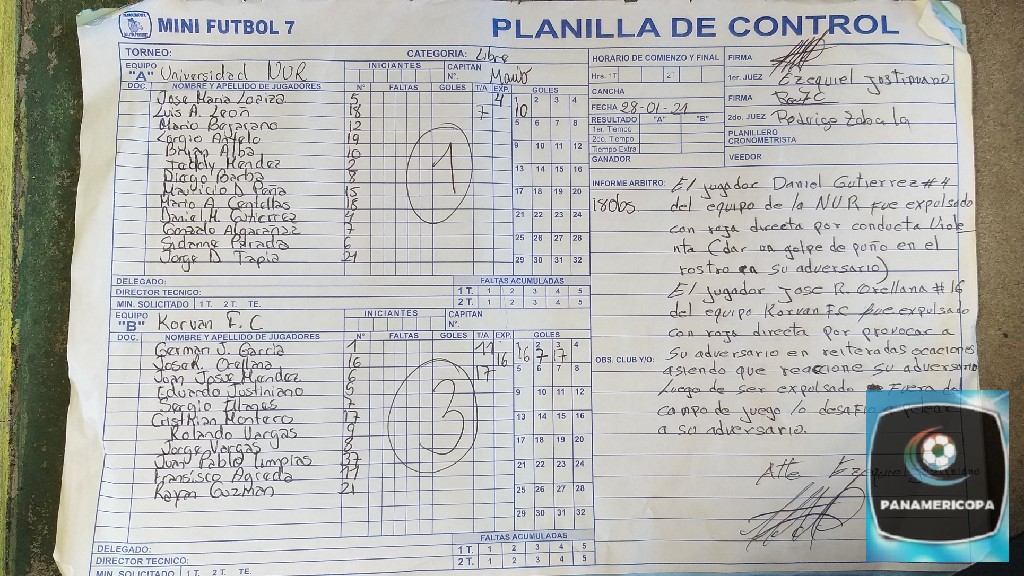 MINI FUTBOL 7
PLANILLA DE CONTROL
TORNEO:
CATEGORIA: Libre
EQUIPO "A" Universidad NUR
INICIANTES
CAPITAN N°.
DOC. NOMBRE Y APELLIDO DE JUGADORES N° FALTAS GOLES T/A EXP. GOLES
Jose Maria Loaiza 5 4
Luis A. Leon 18 7 10
Mario Bejarano 12
Sergio 19
Bryan Alba 10
Freddy Mendez 2
Diego Barba 8
Mauricio D Peña 15
Mario A. Centellas
Daniel H. Gutierrez 4
Gonzalo Algarañaz 7
Parada 6
Jorge D Tapia 21
1
1 2 3 4
5 6 7 8
9 10 11 12
13 14 15 16
17 18 19 20
21 22 23 24
25 26 27 28
29 30 31 32
DELEGADO:
DIRECTOR TECNICO:
MIN. SOLICITADO 1 T. 2 T. TE.
FALTAS ACUMULADAS
1 T. 1 2 3 4 5
2 T. 1 2 3 4 5
EQUIPO "B" Korvan F.C
INICIANTES
CAPITAN N°.
DOC. NOMBRE Y APELLIDO DE JUGADORES N° FALTAS GOLES T/A EXP. GOLES
German J. Garcia 1 11 16 7 7
Jose R. Orellana 16 16
Juan Jose Mendez 6 17
Eduardo Justiniano 5
Sergio 7
Cristhian Montero 17
Rolando Vargas 9
Jorge Vargas 8
Juan Pablo Limpias 27
Fransisco Agreda 11
Guzman 21
3
2 3 4
5 6 7 8
9 10 11 12
13 14 15 16
17 18 19 20
21 22 23 24
25 26 27 28
29 30 31 32
DELEGADO:
DIRECTOR TECNICO:
MIN. SOLICITADO 1 T. 2 T. TE.
FALTAS ACUMULADAS
1 T. 1 2 3 4 5
2 T. 1 2 3 4 5
HORARIO DE COMIENZO Y FINAL
Hrs. 1T 2T
CANCHA
FECHA 28-01-21
RESULTADO "A" "B"
1er. Tiempo
2do. Tiempo
Tiempo Extra
GANADOR
FIRMA
1er. JUEZ Ezequiel Justiniano
FIRMA
2do. JUEZ Rodrigo Zabala
PLANILLERO CRONOMETRISTA
VEEDOR
INFORME ARBITRO: El jugador Daniel Gutierrez #4
180bs. del equipo de la NUR fue expulsado
con roja directa por conducta Viole
nta (dar un golpe de puño en el
rostro a su adversario)
El jugador Jose R. Orellana #16
del equipo Korvan F.C fue expulsado
con roja directa por provocar a
OBS. CLUB Y/O: Su adversario en reiteradas ocaciones
asiendo que reacione su adversario
Luego de ser expulsado Fuera del
campo de juego lo desafio a pelear
a su adversario.
Atte
PANAMERICOPA